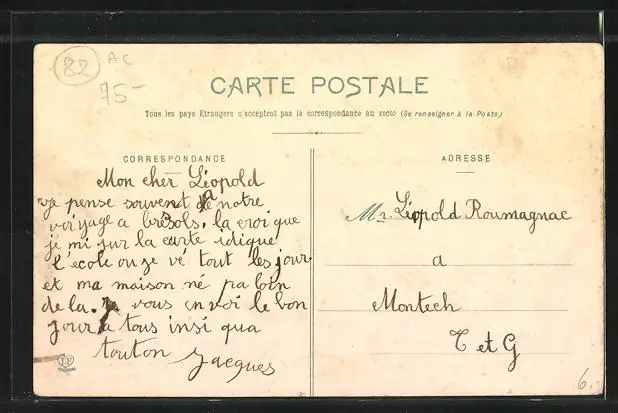 82
AC
75-
CARTE POSTALE
Tous les pays Etrangers n'acceptent pas la correspondance au recto (Se renseigner à la Poste)
CORRESPONDANCE
Mon cher Léopold
je pense souvent a notre
voiyage a brésols. la croi que
je mi sur la carte idique
l'école ou ze vé tout les jour
et ma maison né pa loin
de la. je vous envoi le bon
jour a tous insi qua
tonton Jacques
ADRESSE
Mr. Léopold Roumagnac
a
Montech
T et G
6.-